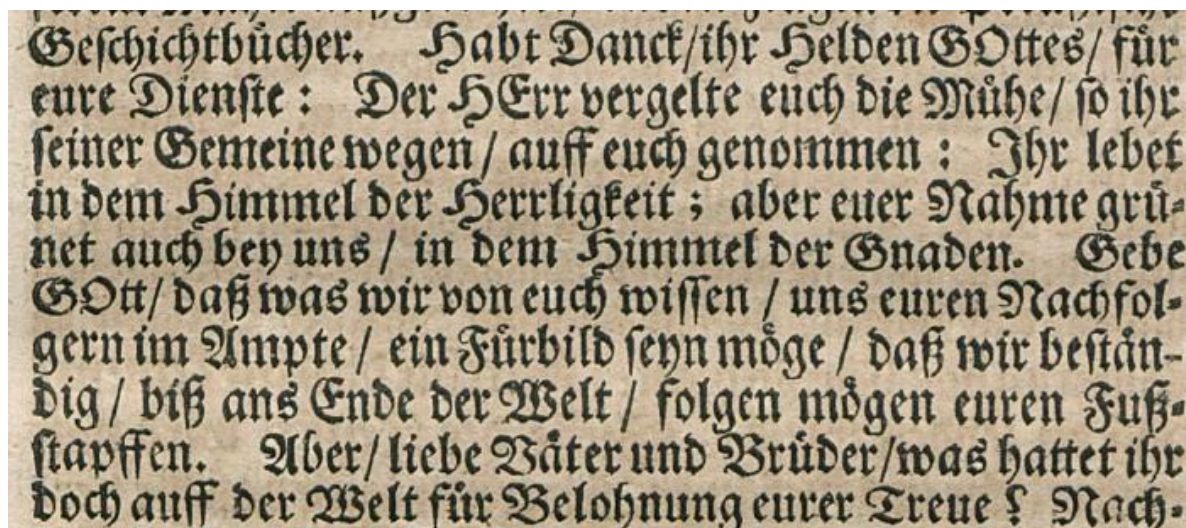 Geſchichtbuͤcher. Habt Danck/ihr Helden GOttes/ fuͤr
eure Dienſte : Der HErr vergelte euch die Muͤhe/ ſo ihr
ſeiner Gemeine wegen / auff euch genommen : Ihr lebet
in dem Himmel der Herrligkeit ; aber euer Nahme gruͤ-
net auch bey uns / in dem Himmel der Gnaden. Gebe
GOtt/ daß was wir von euch wiſſen / uns euren Nachfol-
gern im Ampte / ein Fuͤrbild ſeyn moͤge / daß wir beſtaͤn-
dig / biß ans Ende der Welt / folgen moͤgen euren Fuß-
ſtapffen. Aber/ liebe Vaͤter und Bruͤder/was hattet ihr
doch auff der Welt fuͤr Belohnung eurer Treue ? Nach-